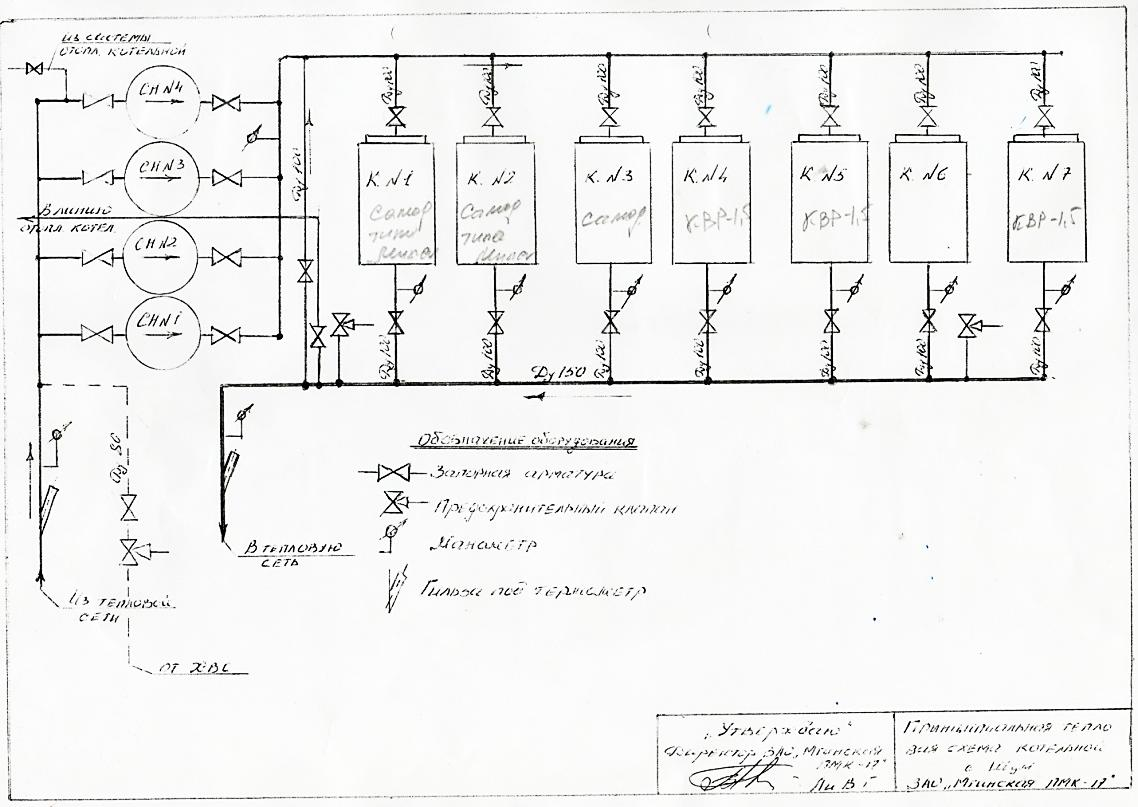 ИЗ СИСТЕМЫ
ОТОПЛ. КОТЕЛЬНОЙ
СН №4
СН №3
В ЛИНИЮ
ОТОПЛ. КОТЕЛ.
СН №2
СН №1
Ду 100
Ду 100
Ду 100
Ду 100
Ду 100
Ду 100
Ду 100
Ду 100
К. №1
Самод
типа
К. №2
Самод
типа
К. №3
Самод.
К. №4
КВР-1,5
К. №5
КВР-1,5
К. №6
К. №7
КВР-1,5
Ду 100
Ду 100
Ду 100
Ду 100
Ду 100
Ду 100
Ду 100
Ду 150
Ду 50
Обозначение оборудования
Запорная арматура
Предохранительный клапан
Манометр
Гильза под термометр
В ТЕПЛОВУЮ
СЕТЬ
ИЗ ТЕПЛОВОЙ
СЕТИ
ОТ ХВС
„Утверждаю"
Директор ЗАО „Мгинской
ПМК-17"
Ли В Г
Принципиальная тепло
вая схема котельной
ЗАО „Мгинская ПМК-17"